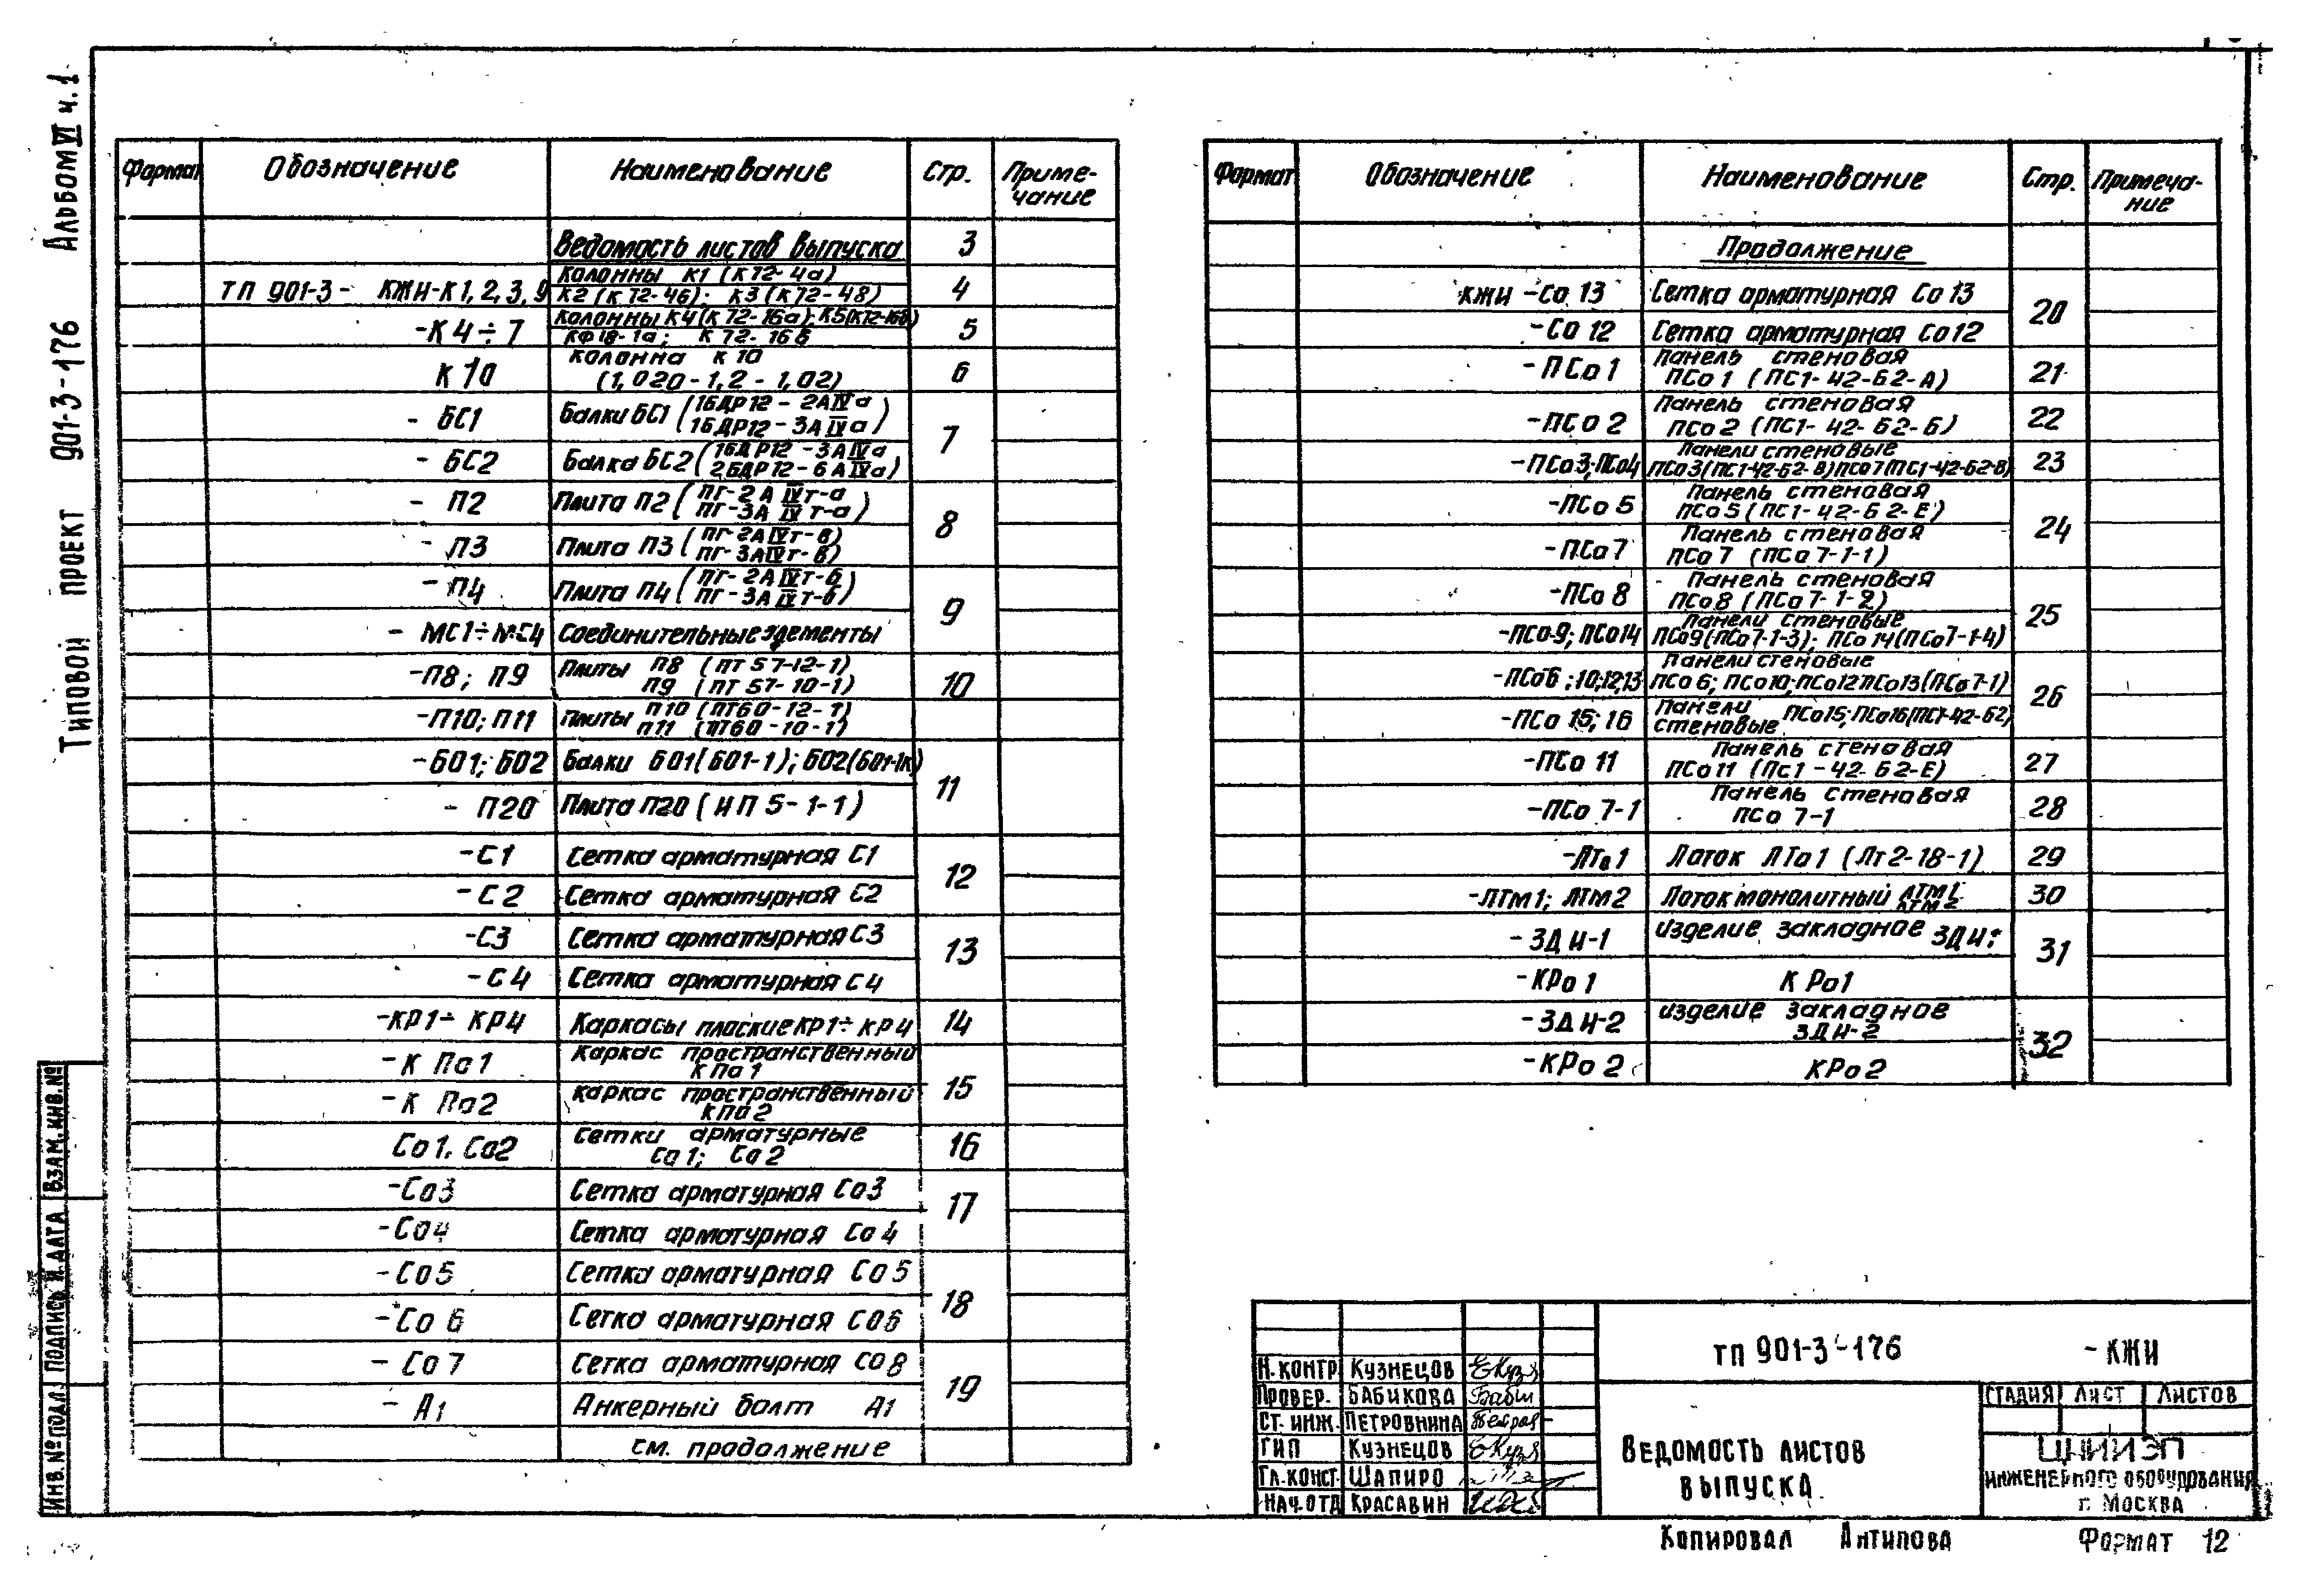 Типовой проект 901-3-176 Альбом VI ч.1
Формат Обозначение Наименование Стр. Приме-
чание
Ведомость листов выпуска 3
Колонны К1 (К72-4а)
ТП 901-3- КЖИ-К1,2,3,9 К2 (К72-46); К3 (К72-48) 4
-К4÷7 Колонны К4 (К72-16а); К5
КФ18-1а; К72-16в 5
К10 Колонна К10
(1,020-1,2-1,02) 6
- БС1 Балки БС1 (1БДР12-2АIVа
1БДР12-3АIVа) 7
- БС2 Балка БС2 (1БДР12-3АIVа
2БДР12-6АIVа)
- П2 Плита П2 (ПГ-2АIVт-а
ПГ-3АIVт-а) 8
- П3 Плита П3 (ПГ-2АIVт-в)
ПГ-3АIVт-в)
- П4 Плита П4 (ПГ-2АIVт-б
ПГ-3АIVт-б) 9
- МС1÷МС4 Соединительные элементы
-П8; П9 Плиты П8 (ПТ57-12-1)
П9 (ПТ57-10-1) 10
-П10; П11 Плиты П10 (ПТ60-12-1)
П11 (ПТ60-10-1)
-Б01; Б02 Балки Б01 (Б01-1); Б02 (Б01-1к) 11
- П20 Плита П20 (ИП5-1-1)
-С1 Сетка арматурная С1 12
-С2 Сетка арматурная С2
-С3 Сетка арматурная С3 13
-С4 Сетка арматурная С4
-КР1÷КР4 Каркасы плоские КР1÷КР4 14
-КПо1 Каркас пространственный
КПо1 15
-КПо2 Каркас пространственный
КПо2
Со1, Со2 Сетки арматурные
Со1; Со2 16
-Со3 Сетка арматурная Со3 17
-Со4 Сетка арматурная Со4
-Со5 Сетка арматурная Со5 18
-Со6 Сетка арматурная Со6
- Со7 Сетка арматурная Со8 19
- А1 Анкерный болт А1
см. продолжение
Формат Обозначение Наименование Стр. Примеча-
ние
Продолжение
КЖИ -Со13 Сетка арматурная Со13 20
-Со12 Сетка арматурная Со12
-ПСо1 Панель стеновая
ПСо1 (ПС1-42-Б2-А) 21
-ПСо2 Панель стеновая
ПСо2 (ПС1-42-Б2-Б) 22
-ПСо3; ПСо4 Панели стеновые
ПСо3 (ПС1-42-Б2-В) ПСо7 (ПС1-42-Б2-В) 23
-ПСо5 Панель стеновая
ПСо5 (ПС1-42-Б2-Е) 24
-ПСо7 Панель стеновая
ПСо7 (ПСо7-1-1)
-ПСо8 Панель стеновая
ПСо8 (ПСо7-1-2) 25
-ПСо9; ПСо14 Панели стеновые
ПСо9 (ПСо7-1-3); ПСо14 (ПСо7-1-4)
-ПСо6; 10; 12; 13 Панели стеновые
ПСо6; ПСо10; ПСо12 ПСо13 (ПСо7-1) 26
-ПСо15; 16 Панели
стеновые ПСо15; ПСо16 (ПС1-42-Б2)
-ПСо11 Панель стеновая
ПСо11 (ПС1-42-Б2-Е) 27
-ПСо7-1 Панель стеновая
ПСо7-1 28
-ЛТо1 Лоток ЛТо1 (Лт2-18-1) 29
-ЛТм1; ЛТм2 Лоток монолитный ЛТМ1
ЛТМ2 30
-ЗДИ-1 Изделие закладное ЗДИ1 31
-КРо1 КРо1
-ЗДИ-2 Изделие закладное
ЗДИ-2 32
-КРо2 КРо2
Инв.№подл. Подпись и дата Взам.инв.№
ТП 901-3-176 -КЖИ
Н.контр Кузнецов
Провер. Бабикова
Ст.инж. Петровнина
ГИП Кузнецов
Гл.конст. Шапиро
Нач.отд Красавин
Ведомость листов
выпуска
Стадия Лист Листов
ЦНИИЭП
инженерного оборудования
г. Москва
Копировал Антипова Формат 12